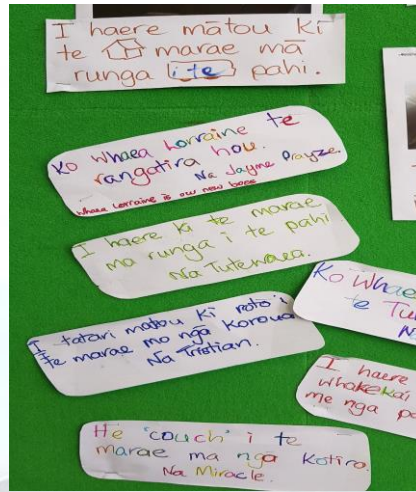 I haere mātou ki
te marae mā
runga i te pahi.
Ko Whaea Lorraine te
rangatira hou.
Na Jayme Drayze.
whaea Lorraine is our new boss
I haere ki te marae
ma runga i te pahi
Na Tutenraea.
Ko Whae
te Tu
N
I tatari matou ki roto i
te marae mo nga koroua
Na Tristian.
I haere
whakekai
me nga pa
He 'couch' i te
marae ma nga kotiro.
Na Miracle.